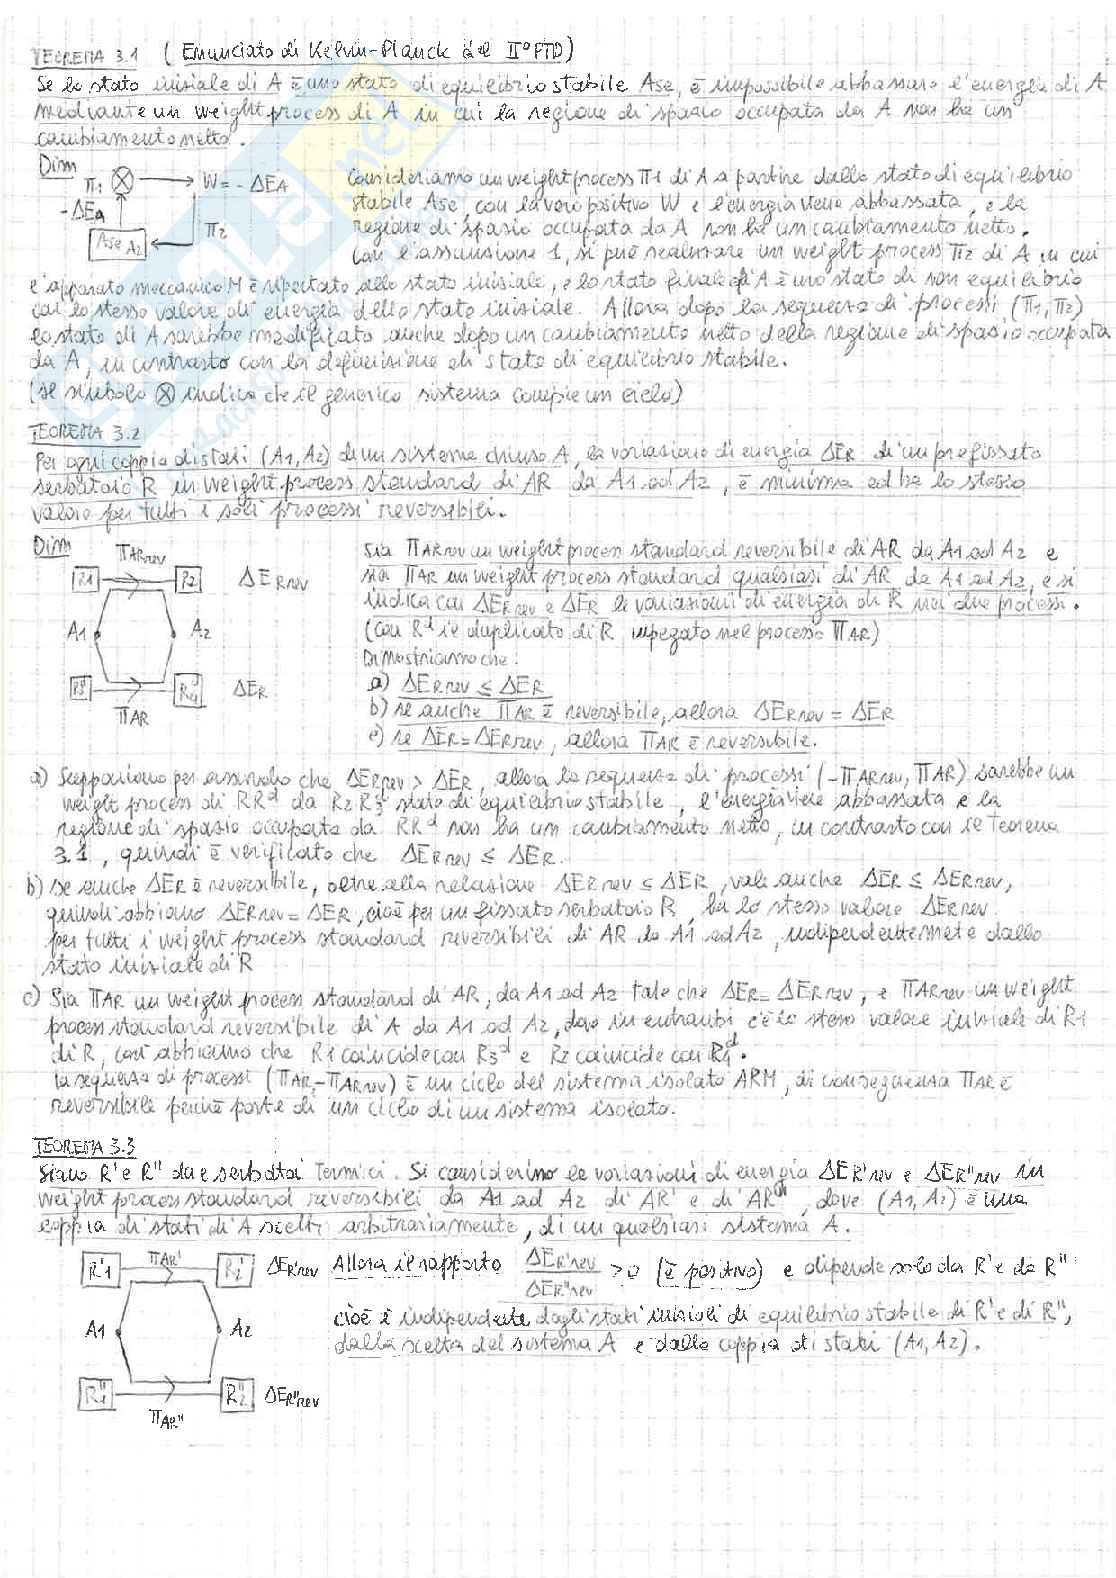 TEOREMA 3.1 ( Enunciato di Kelvin-Planck del II° PTD)
Se lo stato iniziale di A è uno stato di equilibrio stabile Ase, è impossibile abbassare l'energia di A
mediante un weight process di A in cui la regione di spazio occupata da A non ha un
cambiamento netto.
Dim
π1 W = - ΔEA
-ΔEA
π2
Ase A2
Consideriamo un weight process π1 di A a partire dallo stato di equilibrio
stabile Ase, con lavoro positivo W e l'energia viene abbassata, e la
regione di spazio occupata da A non ha un cambiamento netto.
Con l'assunzione 1, si può realizzare un weight process π2 di A in cui
l'apparato meccanico M è riportato allo stato iniziale, e lo stato finale di A è uno stato di non equilibrio
con lo stesso valore di energia dello stato iniziale. Allora dopo la sequenza di processi (π1, π2)
lo stato di A sarebbe modificato anche dopo un cambiamento netto della regione di spazio occupata
da A, in contrasto con la definizione di stato di equilibrio stabile.
(il simbolo ⊗ indica che il generico sistema compie un ciclo)
TEOREMA 3.2
Per ogni coppia di stati (A1, A2) di un sistema chiuso A, la variazione di energia ΔER di un prefissato
serbatoio R in weight process standard di AR da A1 ad A2, è minima ed ha lo stesso
valore per tutti i soli processi reversibili.
Dim
πARrev
R1 R2 ΔERrev
A1 A2
R3d R4d ΔER
πAR
Sia πARrev un weight process standard reversibile di AR da A1 ad A2 e
sia πAR un weight process standard qualsiasi di AR da A1 ad A2, e si
indica con ΔERrev e ΔER le variazioni di energia di R nei due processi.
(con Rd il duplicato di R impegato nel processo πAR)
Dimostriamo che:
a) ΔERrev ≤ ΔER
b) se anche πAR è reversibile, allora ΔERrev = ΔER
c) se ΔER = ΔERrev, allora πAR è reversibile.
a) Supponiamo per assurdo che ΔERrev > ΔER, allora la sequenza di processi (-πARrev, πAR) sarebbe un
weight process di RRd da R2R3d stato di equilibrio stabile, l'energia viene abbassata e la
regione di spazio occupata da RRd non ha un cambiamento netto, in contrasto con il Teorema
3.1, quindi è verificato che ΔERrev ≤ ΔER.
b) Se anche ΔER è reversibile, oltre alla relazione ΔERrev ≤ ΔER, vale anche ΔER ≤ ΔERrev,
quindi abbiamo ΔERrev = ΔER, cioè per un fissato serbatoio R, ha lo stesso valore ΔERrev
per tutti i weight process standard reversibili di AR da A1 ad A2, indipendentemente dallo
stato iniziale di R
c) Sia πAR un weight process standard di AR, da A1 ad A2 tale che ΔER = ΔERrev, e πARrev un weight
process standard reversibile di A da A1 ad A2, dove in entrambi c'è lo stesso valore iniziale di R1
di R, così abbiamo che R1 coincide con R3d e R2 coincide con R4d.
la sequenza di processi (πAR, -πARrev) è un ciclo del sistema isolato ARM, di conseguenza πAR è
reversibile perché parte di un ciclo di un sistema isolato.
TEOREMA 3.3
Siano R' e R'' due serbatoi termici. Si considerino le variazioni di energia ΔER'rev e ΔER''rev in
weight process standard reversibili da A1 ad A2 di AR' e di AR'', dove (A1, A2) è una
coppia di stati di A scelti arbitrariamente, di un qualsiasi sistema A.
πAR'
R'1 R2' ΔER'rev
A1 A2
R1'' R2'' ΔER''rev
πAR''
Allora il rapporto ΔER'rev / ΔER''rev > 0 (è positivo) e dipende solo da R' e da R''
cioè è indipendente dagli stati iniziali di equilibrio stabile di R' e di R'',
dalla scelta del sistema A e dalla coppia di stati (A1, A2).